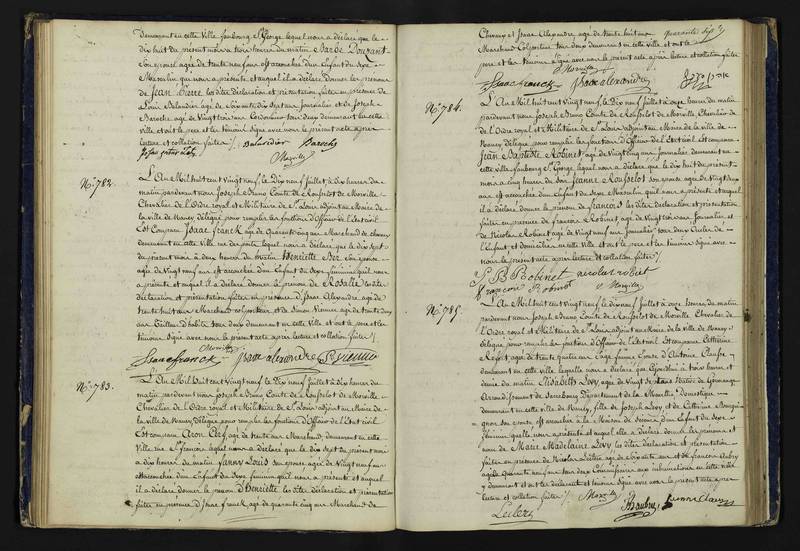 demeurant en cette Ville faubourg St George lequel nous a déclaré que le
dix huit du présent mois à trois heures du matin Barbe Douzant
Son épouse agée de trente neuf ans est accouchée d'un Enfant du Sexe
Masculin qui nous a présenté et auquel il a déclaré donner les prénoms
de Jean Pierre les dites déclaration et présentation faites en présence de
Louis Baland agé de Soixante dix sept ans journalier et de Joseph
Baroche agé de Vingt trois ans Cordonnier tous deux demeurant en cette
Ville et ont le pere et les témoins signé avec nous le présent acte après
lecture et collation faites
Baroche
No. 782.
L'An Mil huit cent Vingt neuf, le Dix neuf Juillet, à dix heures du
matin pardevant nous Joseph Bruno Comte de Rousselot de Morville
Chevalier de l'Ordre Royal et Militaire de St Louis adjoint au Maire de
la ville de Nancy délégué pour remplir les fonctions d'Officier de l'Etat civil
Est Comparu Isaac Franck agé de Quarante Cinq ans Marchand de chevaux
demeurant en cette Ville rue des ponts lequel nous a déclaré que le dix sept
du présent mois à deux heures du matin Henriette Ber son épouse
agée de Vingt neuf ans est accouchée d'un Enfant du Sexe féminin qu'il nous
a présenté et auquel il a déclaré donner le prénom de Rosalie les dites
déclaration et présentation faites en présence d'Isaac Alexandre agé de
trente huit ans Marchand colporteur, et de Simon Vienne agé de trente deux
ans Tailleur d'habits tous deux demeurant en cette Ville et ont le pere et les
témoins Signé avec nous le présent acte après lecture et collation faites
Morville
Isaac franck Isaac alexandre S. Vienne
No. 783.
L'An Mil huit cent Vingt neuf Le Dix neuf Juillet à dix heures du
matin pardevant nous Joseph Bruno Comte de Rousselot de Morville
Chevalier de l'Ordre royal et Militaire de St Louis adjoint au Maire de
la ville de Nancy Délégué pour remplir les fonctions d'Officier de l'Etat civil
Est comparu Aron Cerf agé de trente ans Marchand, demeurant en cette
Ville rue St François lequel nous a déclaré que le dix sept du présent mois
à dix heures du matin Fanny Louis Son épouse agée de Vingt neuf ans
est accouchée d'un Enfant du Sexe féminin qu'il nous a présenté et auquel
il a déclaré donner le prénom d'Henriette les dites déclaration et présentation
faites en présence d'Isaac franck, agé de quarante cinq ans Marchand de
Chevaux et Isaac Alexandre agé de trente huit ans
Marchand Colporteur tous deux demeurant en cette ville et ont le
pere et les témoins signé avec nous le présent acte après lecture et collation faites
Morville
Isaac franck Isaac alexandre
No. 784.
L'An Mil huit cent Vingt neuf, le Dix neuf Juillet à onze heures du matin
pardevant nous Joseph Bruno Comte de Rousselot de Morville, Chevalier de
de l'Ordre royal et Militaire de St Louis adjoint au Maire de la ville de
Nancy délégué pour remplir les fonctions d'Officier de l'Etat civil Est comparu
Jean Baptiste Robinet agé de Vingt cinq ans, journalier demeurant en
cette Ville faubourg St George, lequel nous a déclaré que le dix huit du présent
mois à cinq heures du soir Jeanne Rousselot son épouse agée de Vingt deux
ans est accouchée d'un Enfant du Sexe Masculin qu'il nous a présenté et auquel
il a déclaré donner le prénom de françois les dites déclaration et présentation
faites en présence de françois Robinet agé de Vingt trois ans Journalier et
de Nicolas Robinet agé de Vingt neuf ans Journalier tous deux Oncles de
l'Enfant et domiciliés en cette Ville et ont le pere et les témoins signé avec
nous le présent acte après lecture et collation faites
J B Robinet nicolas robinet
françois Robinet Morville
No. 785.
L'An Mil huit cent Vingt neuf, le dix neuf Juillet à onze heures du matin
pardevant nous Joseph Bruno Comte de Rousselot de Morville Chevalier de
L'Ordre royal et Militaire de St Louis adjoint au Maire de la ville de Nancy
délégué pour remplir les fonctions d'Officier de l'Etat civil Est comparue Catherine
agée de trente quatre ans Sage femme Epouse d'Antoine Claude
demeurant en cette ville, laquelle nous a déclaré que à trois heures et
demie du matin Elisabeth Levy, agée de Vingt
Arrondissement de Sarrebourg Département de la Meurthe Domestique
demeurant en cette ville de Nancy, fille de Joseph Levy, et de Catherine
est accouchée à la Maison de Secours d'un Enfant du Sexe
féminin quelle nous a présenté et auquel elle a déclaré donner les prénoms et
nom de Marie Madelaine Levy les dites Déclaration et présentation
faites en présence de Nicolas Leclerc agé de Soixante ans et de françois Aubry
agé de Quarante neuf ans tous deux
demeurant et ont les déclarant et témoins signé avec nous le présent acte après
lecture et collation faites Morville
Leclerc Aubry femme Claude